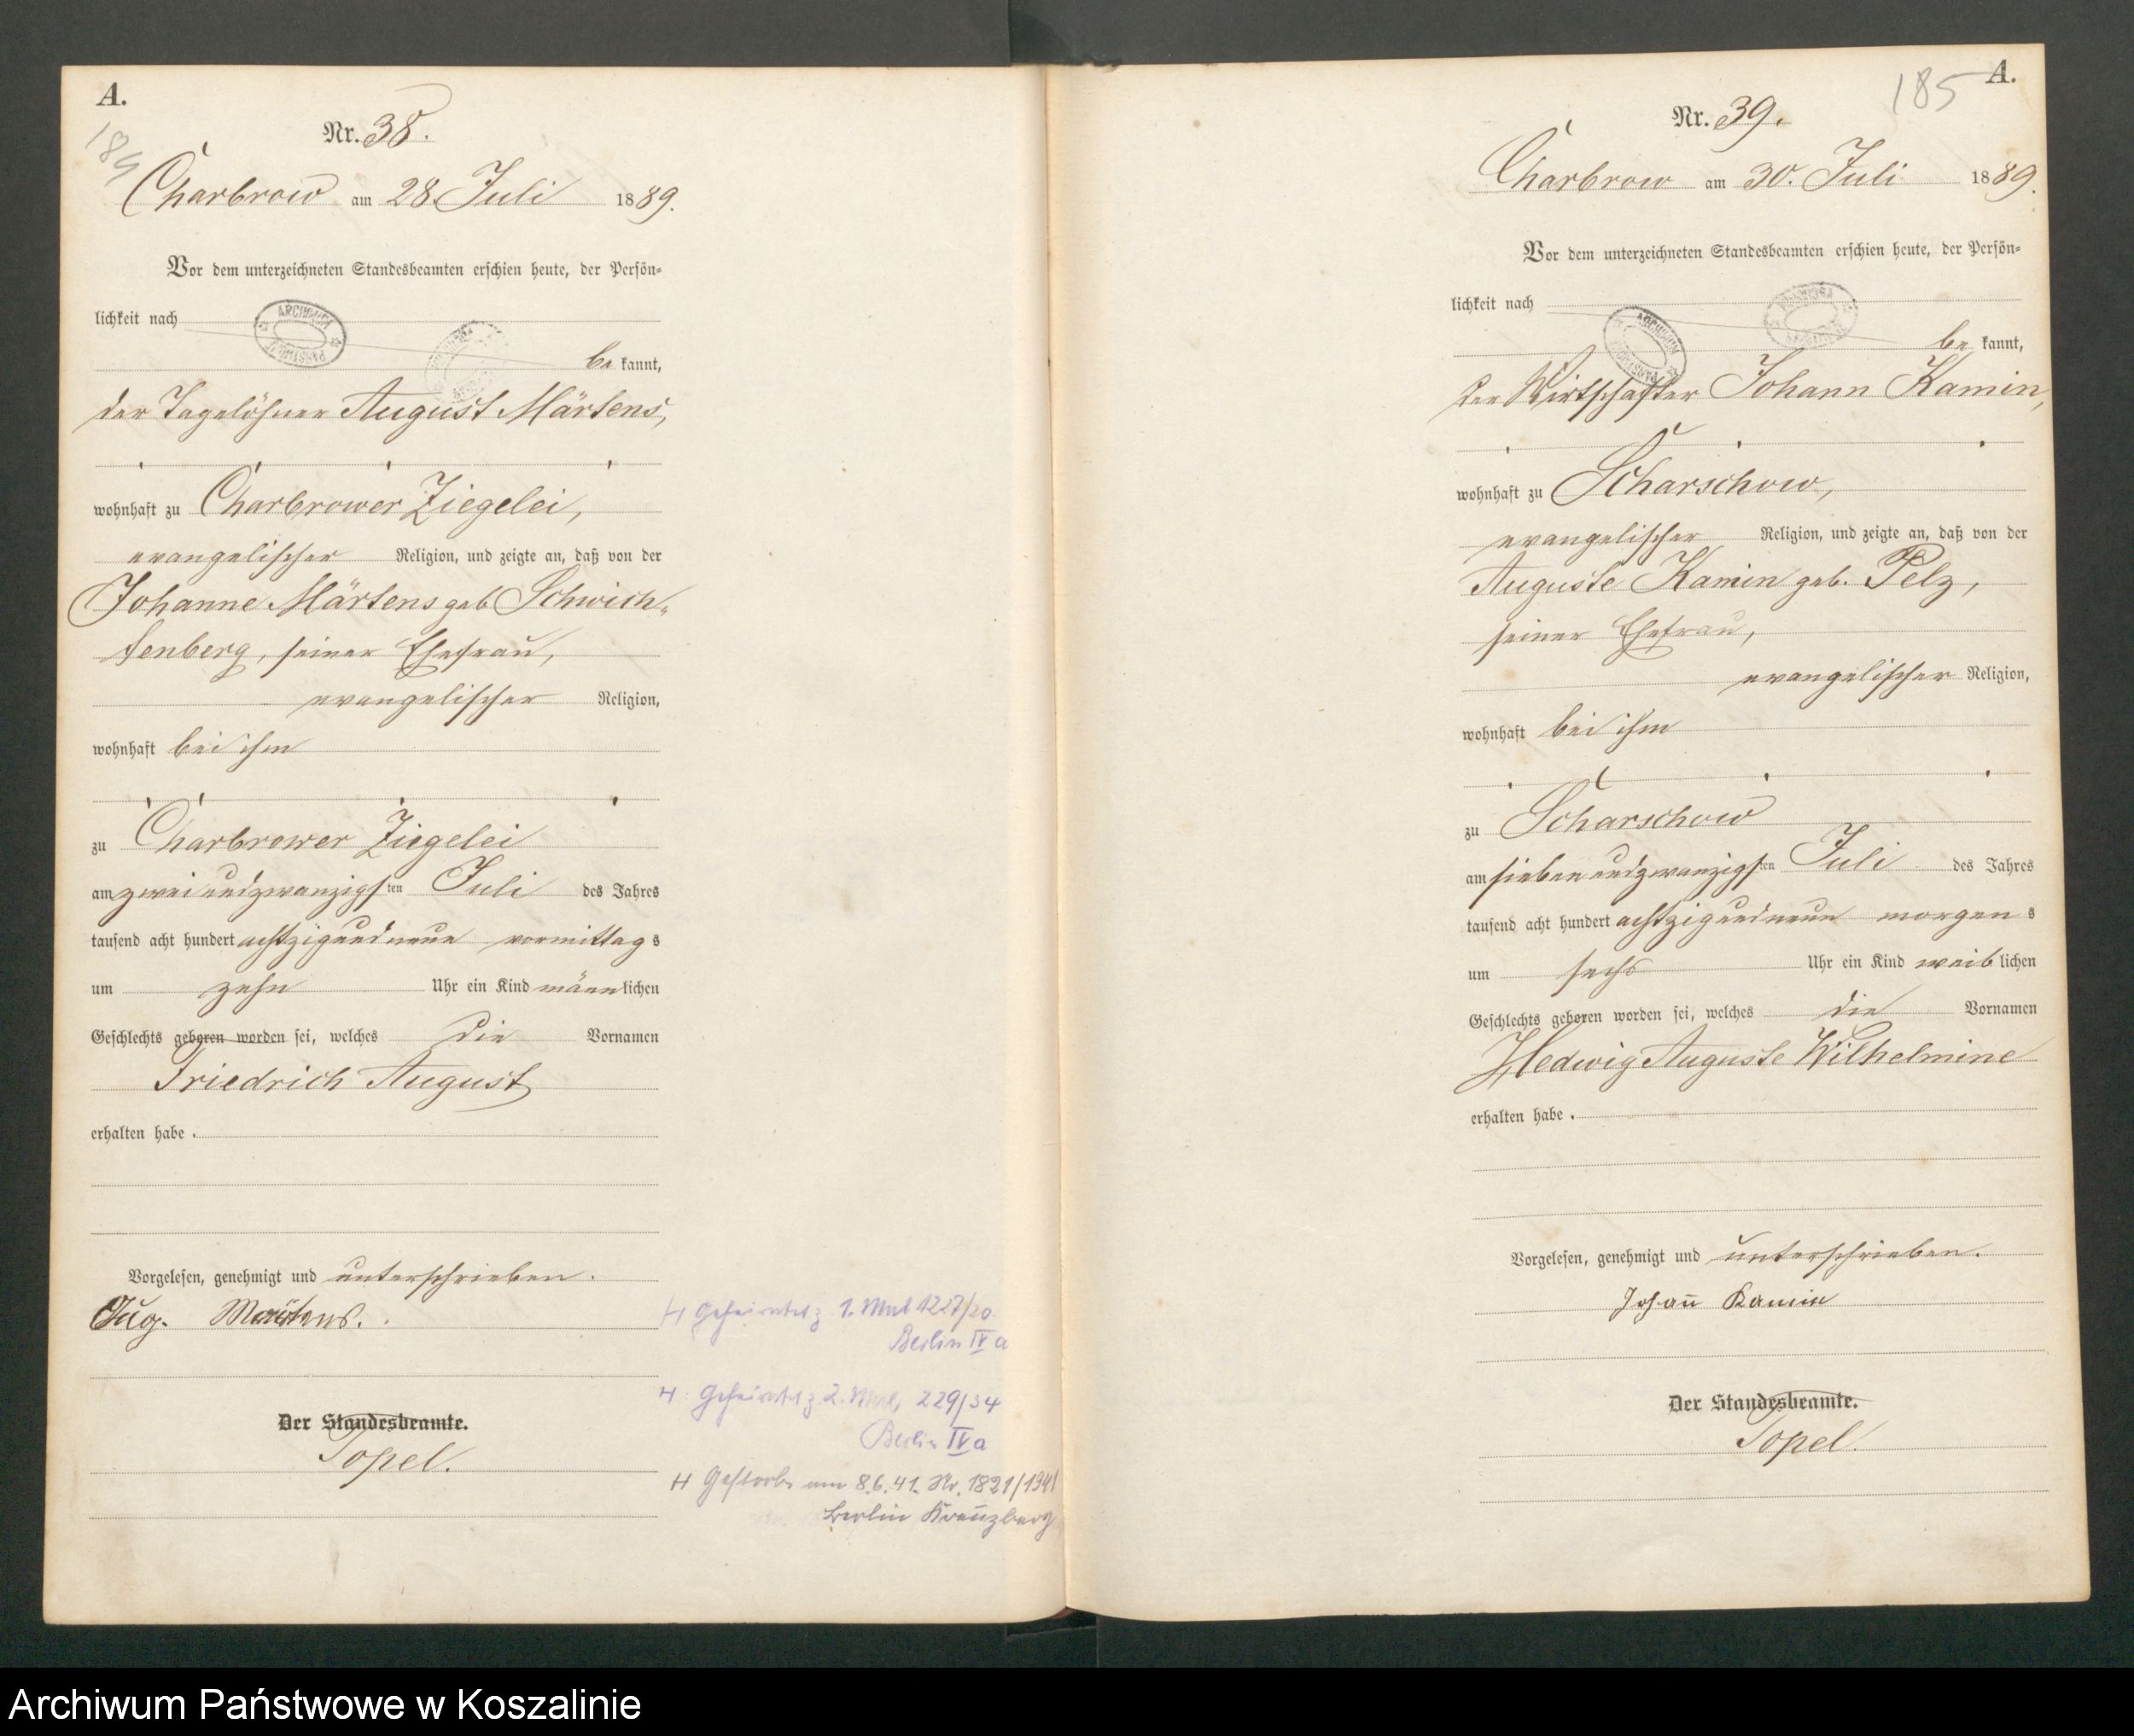 A.
184
Nr. 38.
Charbrow am 28. Juli 1889.
Vor dem unterzeichneten Standesbeamten erschien heute, der Persön-
lichkeit nach
ARCHIWUM
be kannt,
der Tagelöhner August Märtens,
wohnhaft zu Charbrower Ziegelei,
evangelischer Religion, und zeigte an, daß von der
Johanne Märtens geb. Schwich-
tenberg, seiner Ehefrau,
evangelischer Religion,
wohnhaft bei ihm
zu Charbrower Ziegelei
am zweiundzwanzigsten Juli des Jahres
tausend acht hundert achtzigundneun vormittags
um zehn Uhr ein Kind männlichen
Geschlechts geboren worden sei, welches die Vornamen
Friedrich August
erhalten habe.
Vorgelesen, genehmigt und unterschrieben.
Aug. Märtens.
Der Standesbeamte.
Topel.
H Geheiratet z. 1. Mal 1227/20
Berlin IV a
H: Geheiratet z. 2. Mal, 229/34
Berlin IV a
H Gestorben am 8.6.41. Nr. 1821/1941
Berlin Kreuzberg
A.
185
Nr. 39.
Charbrow am 30. Juli 1889.
Vor dem unterzeichneten Standesbeamten erschien heute, der Persön-
lichkeit nach
ARCHIWUM
be kannt,
der Wirtschafter Johann Kamin,
wohnhaft zu Scharschow,
evangelischer Religion, und zeigte an, daß von der
Auguste Kamin geb. Pelz,
seiner Ehefrau,
evangelischer Religion,
wohnhaft bei ihm
zu Scharschow
am siebenundzwanzigsten Juli des Jahres
tausend acht hundert achtzigundneun morgens
um sechs Uhr ein Kind weiblichen
Geschlechts geboren worden sei, welches die Vornamen
Hedwig Auguste Wilhelmine
erhalten habe.
Vorgelesen, genehmigt und unterschrieben.
Johann Kamin
Der Standesbeamte.
Topel.
Archiwum Państwowe w Koszalinie